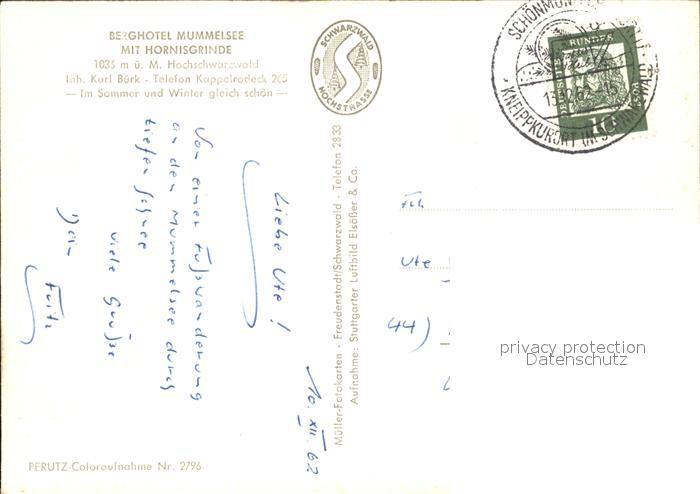 BERGHOTEL MUMMELSEE
MIT HORNISGRINDE
1035 m ü. M. Hochschwarzwald
Inh. Karl Bürk - Telefon Kappelrodeck 265
— Im Sommer und Winter gleich schön —
SCHWARZWALD
HOCHSTRASSE
SCHÖNMÜNZ
KNEIPPKURORT IM SCHWARZWALD
10. XII. 62
Liebe Ute!
Von einer Fußwanderung
an den Mummelsee durch
tiefen Schnee
viele Grüße
Dein
Fritz
Müller-Fotokarten - Freudenstadt/Schwarzwald - Telefon 2833
Aufnahme: Stuttgarter Luftbild Elsäßer & Co.
Frl.
Ute
44)
privacy protection
Datenschutz
PERUTZ-Coloraufnahme Nr. 2796